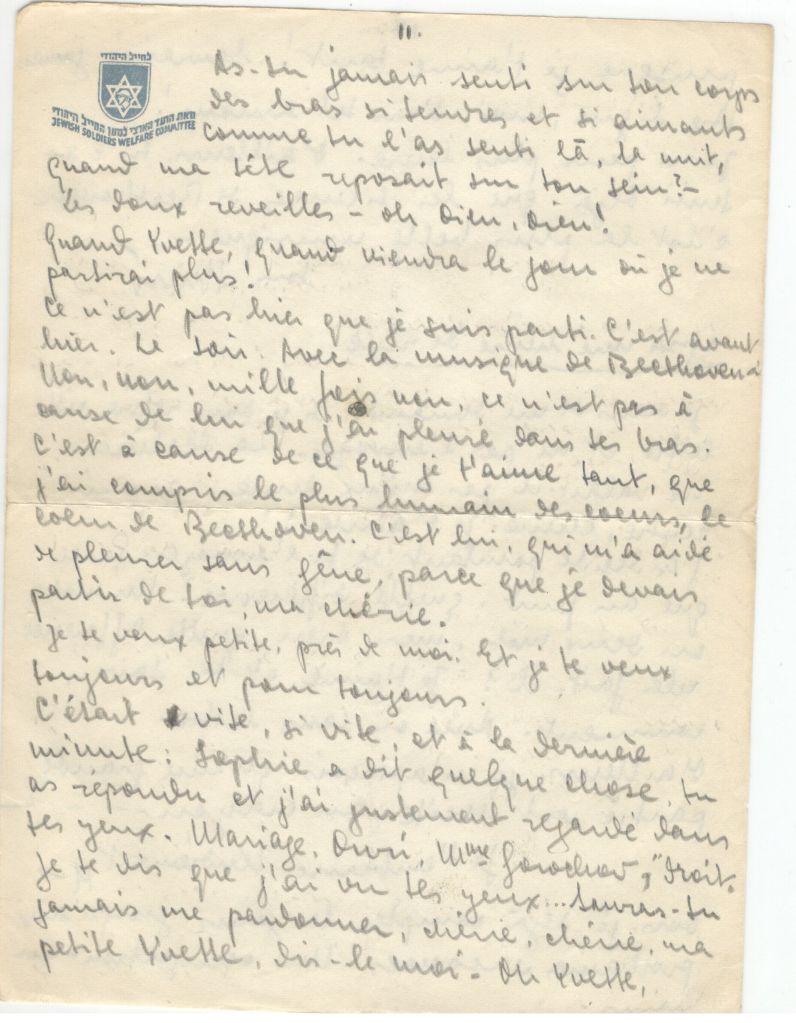 11.
לחייל היהודי
מאת הועד הארצי למען החייל היהודי
JEWISH SOLDIERS WELFARE COMMITTEE
As-tu jamais senti sur ton corps
des bras si tendres et si aimants
comme tu l'as senti là, la nuit,
quand ma tête reposait sur ton sein?-
Les doux reveilles - oh Dieu, Dieu!
Quand Yvette, quand viendra le jour où je ne
partirai plus!
Ce n'est pas hier que je suis parti. C'est avant
hier. Le soir. Avec la musique de Beethoven
Non, non, mille fois non, ce n'est pas à
cause de lui que j'ai pleuré dans tes bras.
C'est à cause de ce que je t'aime tant, que
j'ai compris le plus humain des coeurs, le
coeur de Beethoven. C'est lui, qui m'a aidé
de pleurer sans gêne, parce que je devais
partir de toi, ma chérie.
Je te veux petite, près de moi. Et je te veux
toujours et pour toujours.
C'était vite, si vite, et à la dernière
minute: Sophie a dit quelque chose, tu
as répondu et j'ai justement regardé dans
tes yeux. Mariage, Ouri, Mme "droit"
Je te dis que j'ai vu tes yeux... Sauras-tu
jamais me pardonner, chérie, chérie, ma
petite Yvette, dis-le moi - Oh Yvette,